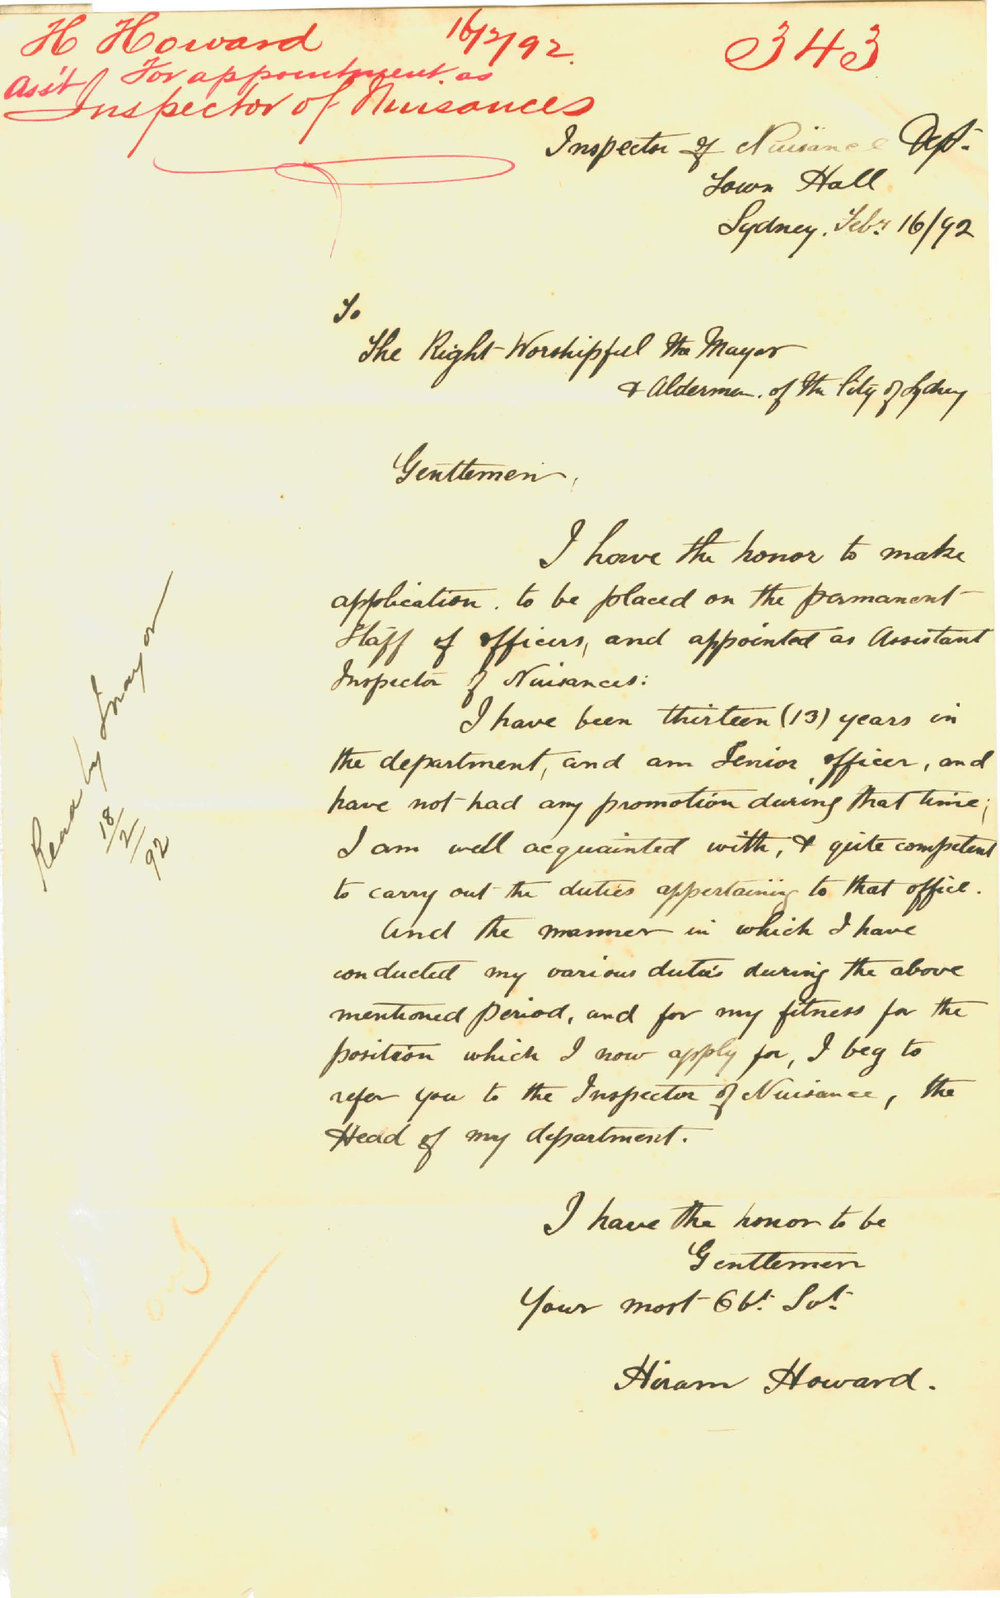 H Howard 16/2/92. 343
For appointment as
Ass't Inspector of Nuisances
Inspector of Nuisance Dept.
Town Hall
Sydney. Feby 16/92
To
The Right Worshipful the Mayor
& Aldermen. of the City of Sydney
Gentlemen,
I have the honor to make
application. to be placed on the permanent
Staff of officers, and appointed as Assistant
Inspector of Nuisances:
I have been thirteen (13) years in
the department, and am Senior officer, and
have not had any promotion during that time;
I am well acquainted with, & quite competent
to carry out the duties appertaining to that office.
And the manner in which I have
conducted my various duties during the above
mentioned period, and for my fitness for the
position which I now apply for, I beg to
refer you to the Inspector of Nuisance, the
Head of my department.
I have the honor to be
Gentlemen
Your most Obt. Svt.
Hiram Howard.
Read by Mayor
18/2/92